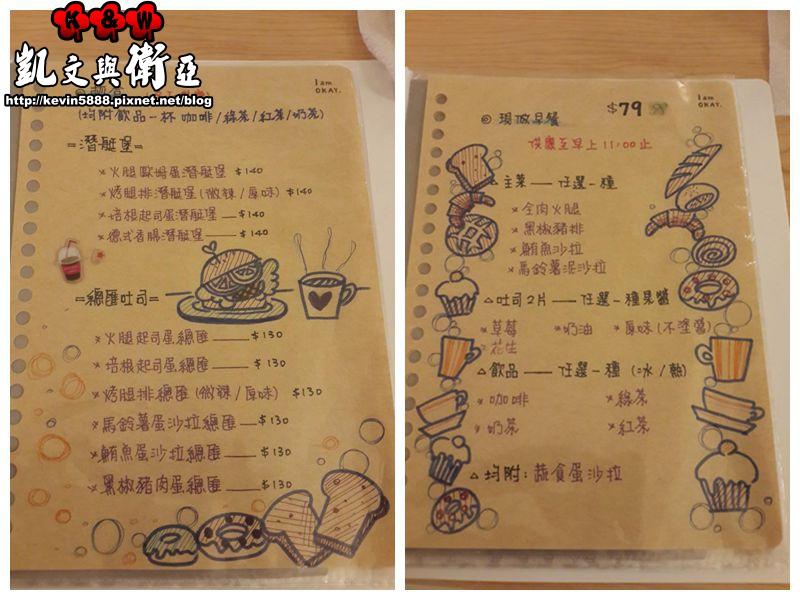 K&W
凱文與衛亞
http://kevin5888.pixnet.net/blog
I am
OKAY.
(均附飲品一杯 咖啡/綠茶/紅茶/奶茶)
=潛艇堡=
×火腿歐姆蛋潛艇堡 $140
×烤腿排潛艇堡(微辣/原味) $140
×培根起司蛋潛艇堡 $140
×德式香腸潛艇堡 $140
=總匯吐司=
×火腿起司蛋總匯 $130
×培根起司蛋總匯 $130
×烤腿排總匯(微辣/原味) $130
×馬鈴薯蛋沙拉總匯 $130
×鮪魚蛋沙拉總匯 $130
×黑椒豬肉蛋總匯 $130
I am
OKAY.
◎現做早餐 $79
供應至早上11:00止
△主菜——任選一種
×全肉火腿
×黑椒豬排
×鮪魚沙拉
×馬鈴薯泥沙拉
△吐司2片——任選一種果醬
×草莓 ×奶油 ×原味(不塗醬)
×花生
△飲品——任選一種(冰/熱)
×咖啡 ×綠茶
×奶茶 ×紅茶
△均附:蔬食蛋沙拉